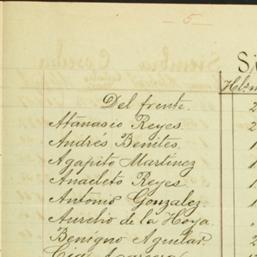 5
Del frente.
Atanasio Reyes
Andrés Benites.
Agapito Martinez
Anacleto Reyes
Antonio Gonzalez.
Aurelio de la Hoya.
Benigno Aguilar.